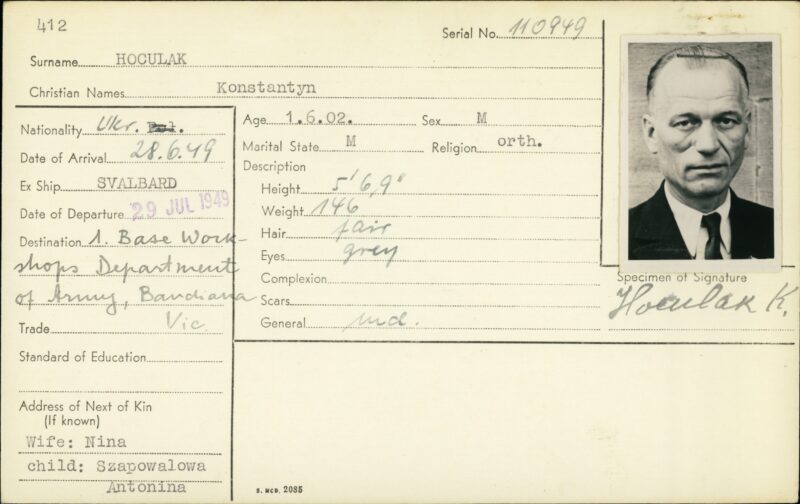 412
Serial No. 110949
Surname HOCULAK
Christian Names Konstantyn
Nationality Ukr. Pol.
Date of Arrival 28.6.49
Ex Ship SVALBARD
Date of Departure 29 JUL 1949
Destination 1. Base Work-
shops Department
of Army, Bandiana
Vic.
Trade
Standard of Education
Address of Next of Kin
(If known)
Wife: Nina
child: Szapowalowa
Antonina
Age 1.6.02. Sex M
Marital State M Religion orth.
Description
Height 5' 6,9"
Weight 146
Hair fair
Eyes grey
Complexion
Scars
General md.
Specimen of Signature
Hoculak K.
S. MCD. 2085